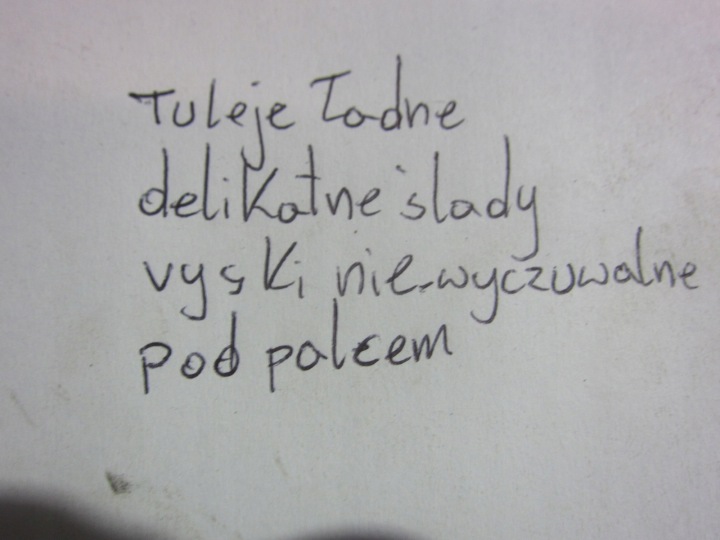 Tuleje Ładne
deliKatne ślady
vysKi nie-wyczuwalne
pod palcem